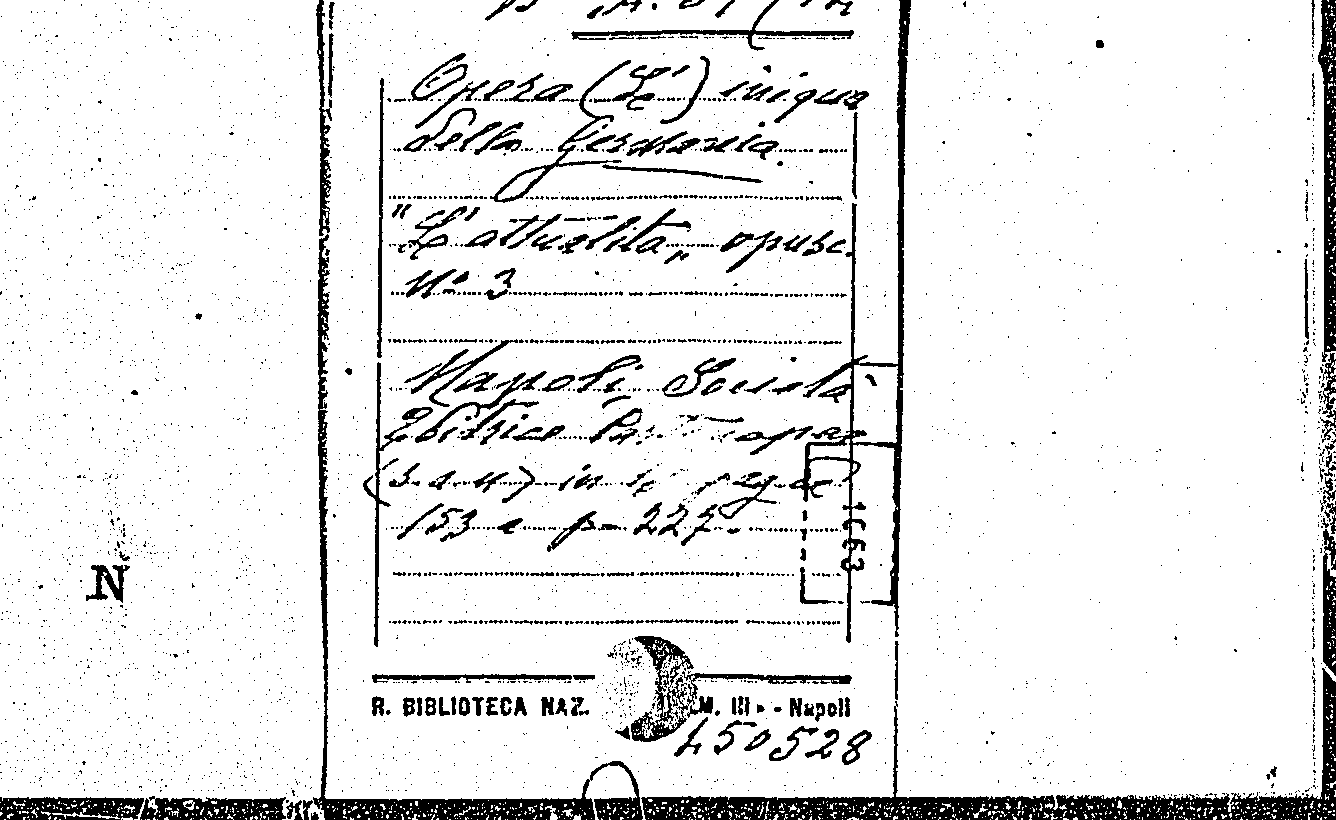 Opera (L') iniqua
della Germania.
"L'attualità„ opusc.
Nº 3
Napoli, Società
Editrice Partenopea
(s. a. n) in
153 a p. 227.
N
1663
R. BIBLIOTECA NAZ. M. III » - Napoli
450528